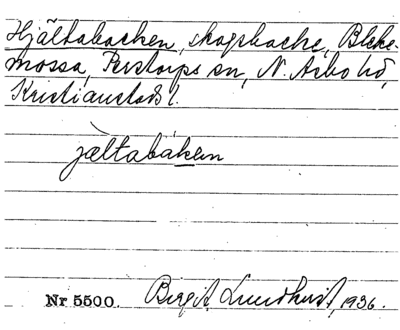 Hjältabacken, skogsbacke, Bleke-
mossa, Perstorps sn, N. Åsbo hd,
Kristianstads l.
jæltabákεn
Nr 5500. Birgit Lundkvist, 1936.